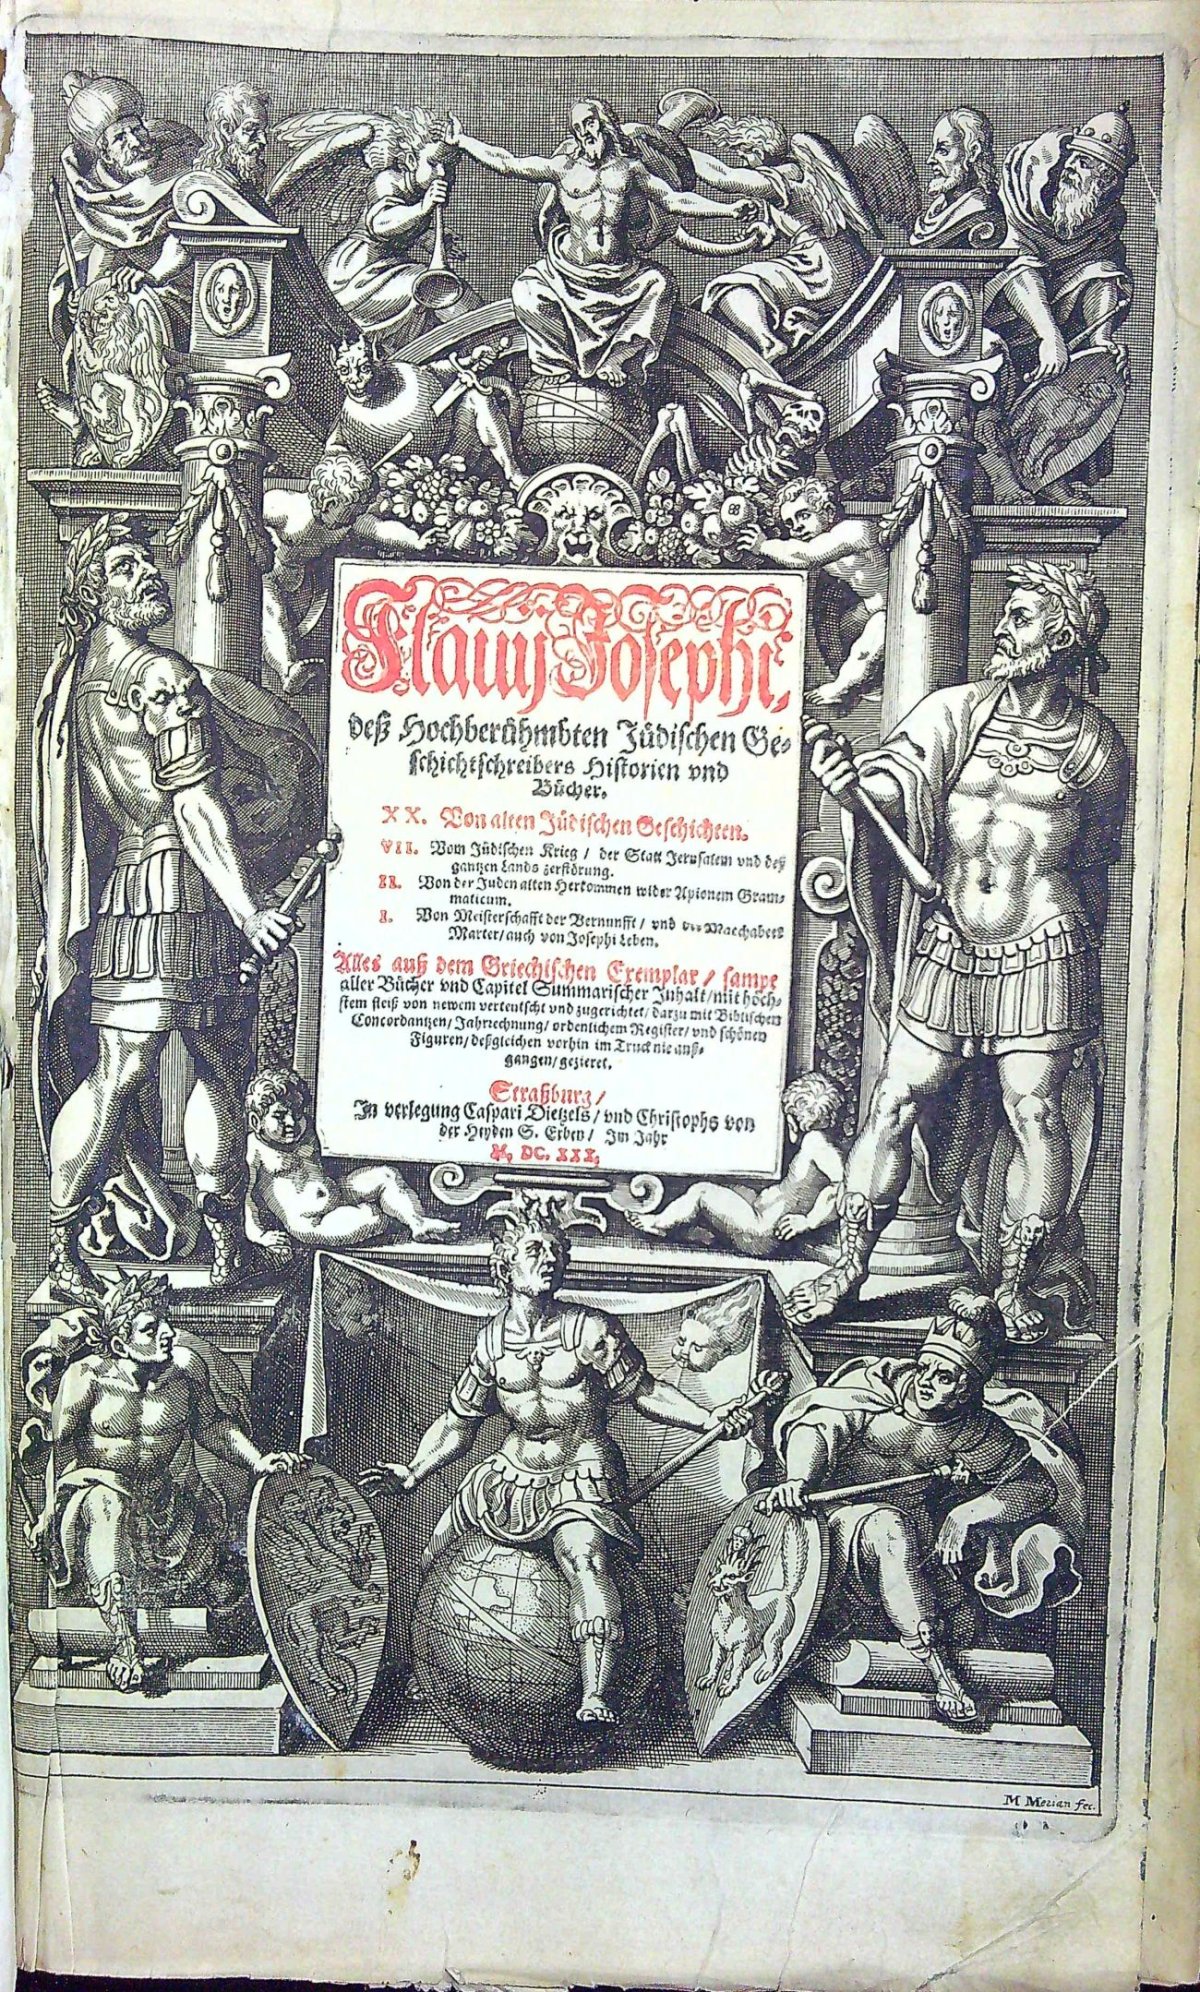 Flavij Josephi,
deß Hochberühmbten Jüdischen Ge-
schichtschreibers Historien vnd
Bücher.
XX. Von alten Jüdischen Geschichten.
VII. Vom Jüdischen Krieg / der Statt Jerusalem vnd deß
gantzen Lands zerstörung.
II. Von der Juden alten Herkommen wider Apionem Gram-
maticum.
I. Von Meisterschafft der Vernunfft / vnd der Macchabeer
Marter / auch von Josephi Leben.
Alles auß dem Griechischen Exemplar / sampt
aller Bücher vnd Capitel Summarischer Inhalt / mit höch-
stem fleiß von newem verteutscht vnd zugerichtet / darzu mit Biblischen
Concordantzen / Jahrrechnung / ordenlichem Register / vnd schönen
Figuren / deßgleichen vorhin im Truck nie auß-
gangen / gezieret.
Straßburg /
In verlegung Caspari Dietzels / vnd Christophs von
der Heyden S. Erben / Im Jahr
M, DC. XXX,
M Merian fec.